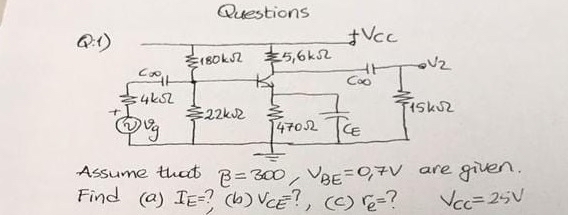 Questions
Q.1)
+Vcc
180kΩ
5,6kΩ
C∞
C∞
V2
4kΩ
+
Vg
22kΩ
470Ω
CE
15kΩ
Assume that β=300, VBE=0,7V are given.
Find (a) IE=?, (b) VCE=?, (c) re=? Vcc=25V